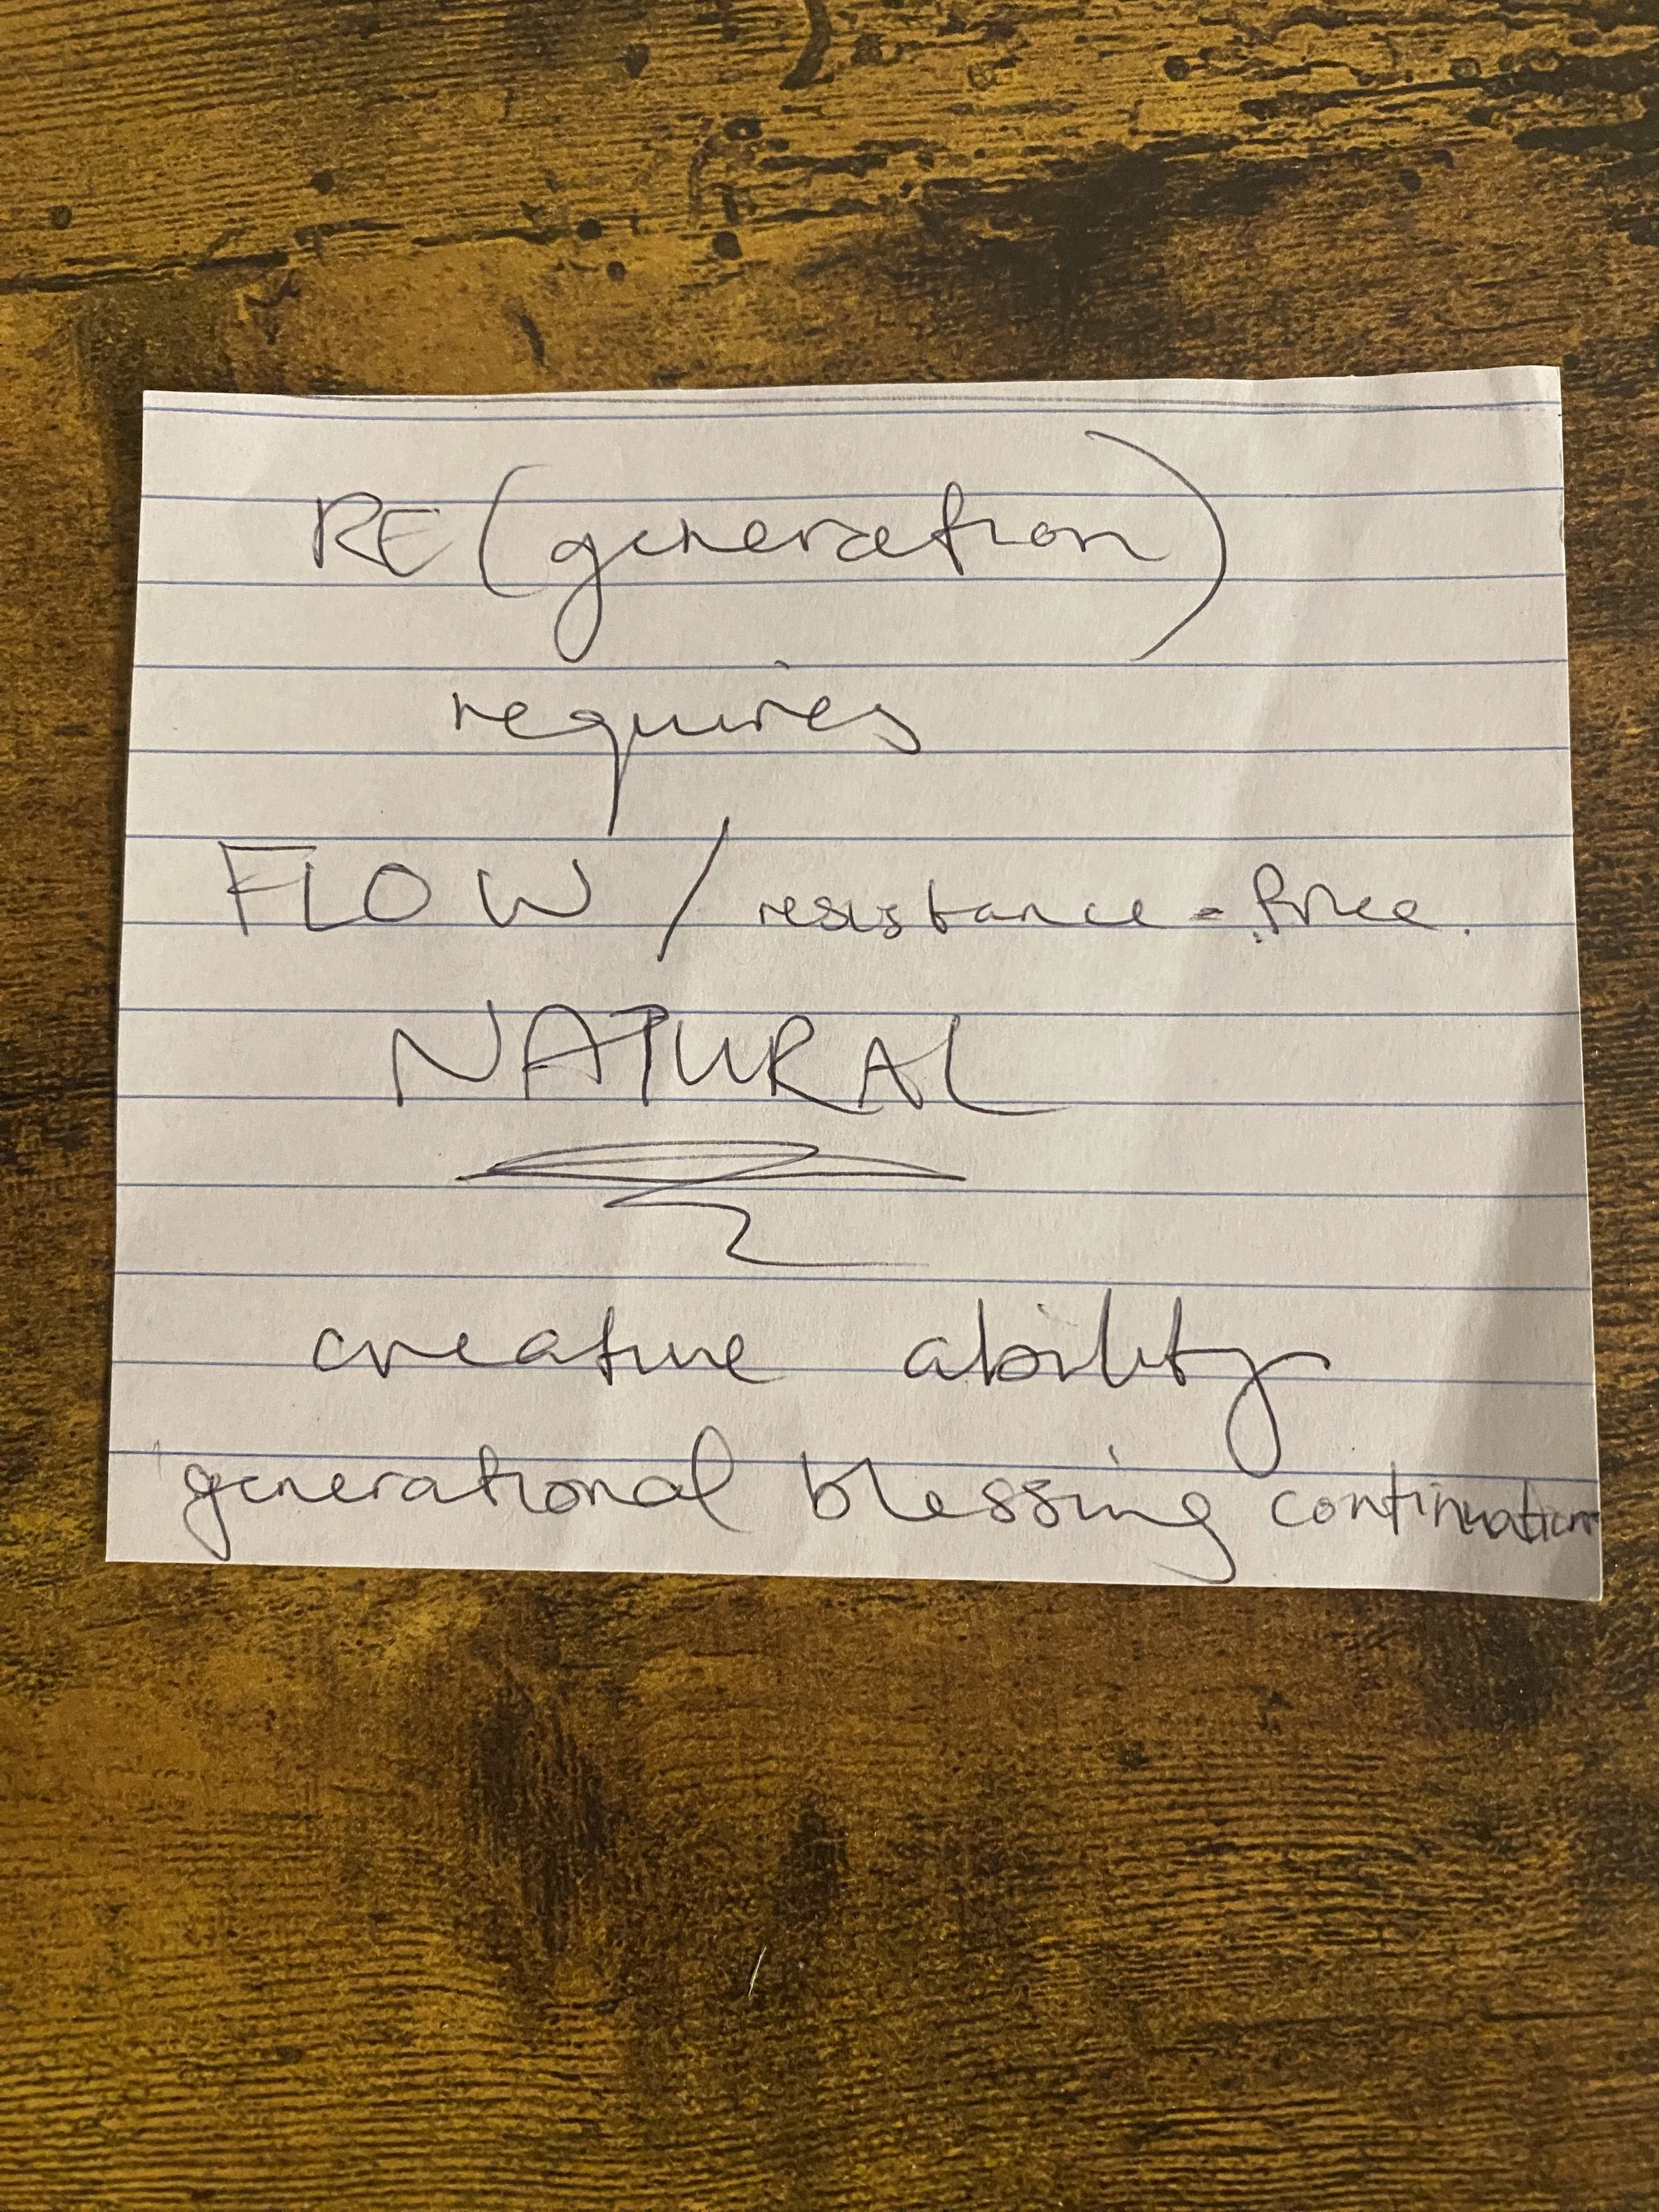 RE (generation)
requires
FLOW / resistance-free.
NATURAL
creative ability
generational blessing continuation